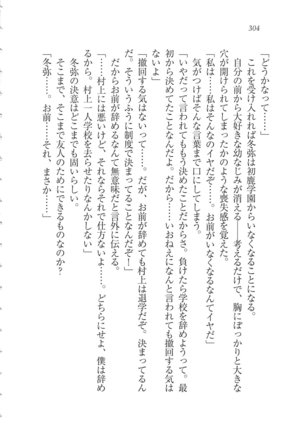 304
「どうかなって……」
これを受け入れれば冬弥は初鹿学園にいなくなることになる。
自分の前から大好きな幼なじみが消える――考えるだけで、胸にぽっかりと大きな
穴が開けられてしまったかのような喪失感を覚えた。
「私は……私はそんなのイヤだぞ……。お前がいなくなるなんてイヤだ」
気がつけばそんな言葉まで口にしてしまう。
「いやだって言われてももう決めたことだからさ。負けたら学校を辞めようって。最
初から決めてたことなんだよ。だから……いおねえになんと言われても撤回する気は
ないよ」
「撤回する気はないって……。だが、お前が辞めても村上は退学だぞ。決まってるん
だ。そういうふうに制度で決まってることなんだぞ――」
だからお前が辞めるなんて無意味だと言外に伝える。
「……村上には悪いけど、それならそれで仕方ないよ……。どちらにせよ、僕は辞め
るから。村上一人学校を去らせたりなんかしない」
冬弥の決意はどこまでも固いらしい。
そこまで、そこまで友人のためにできるものなのか？
「冬弥……。お前……それ、まさか……」